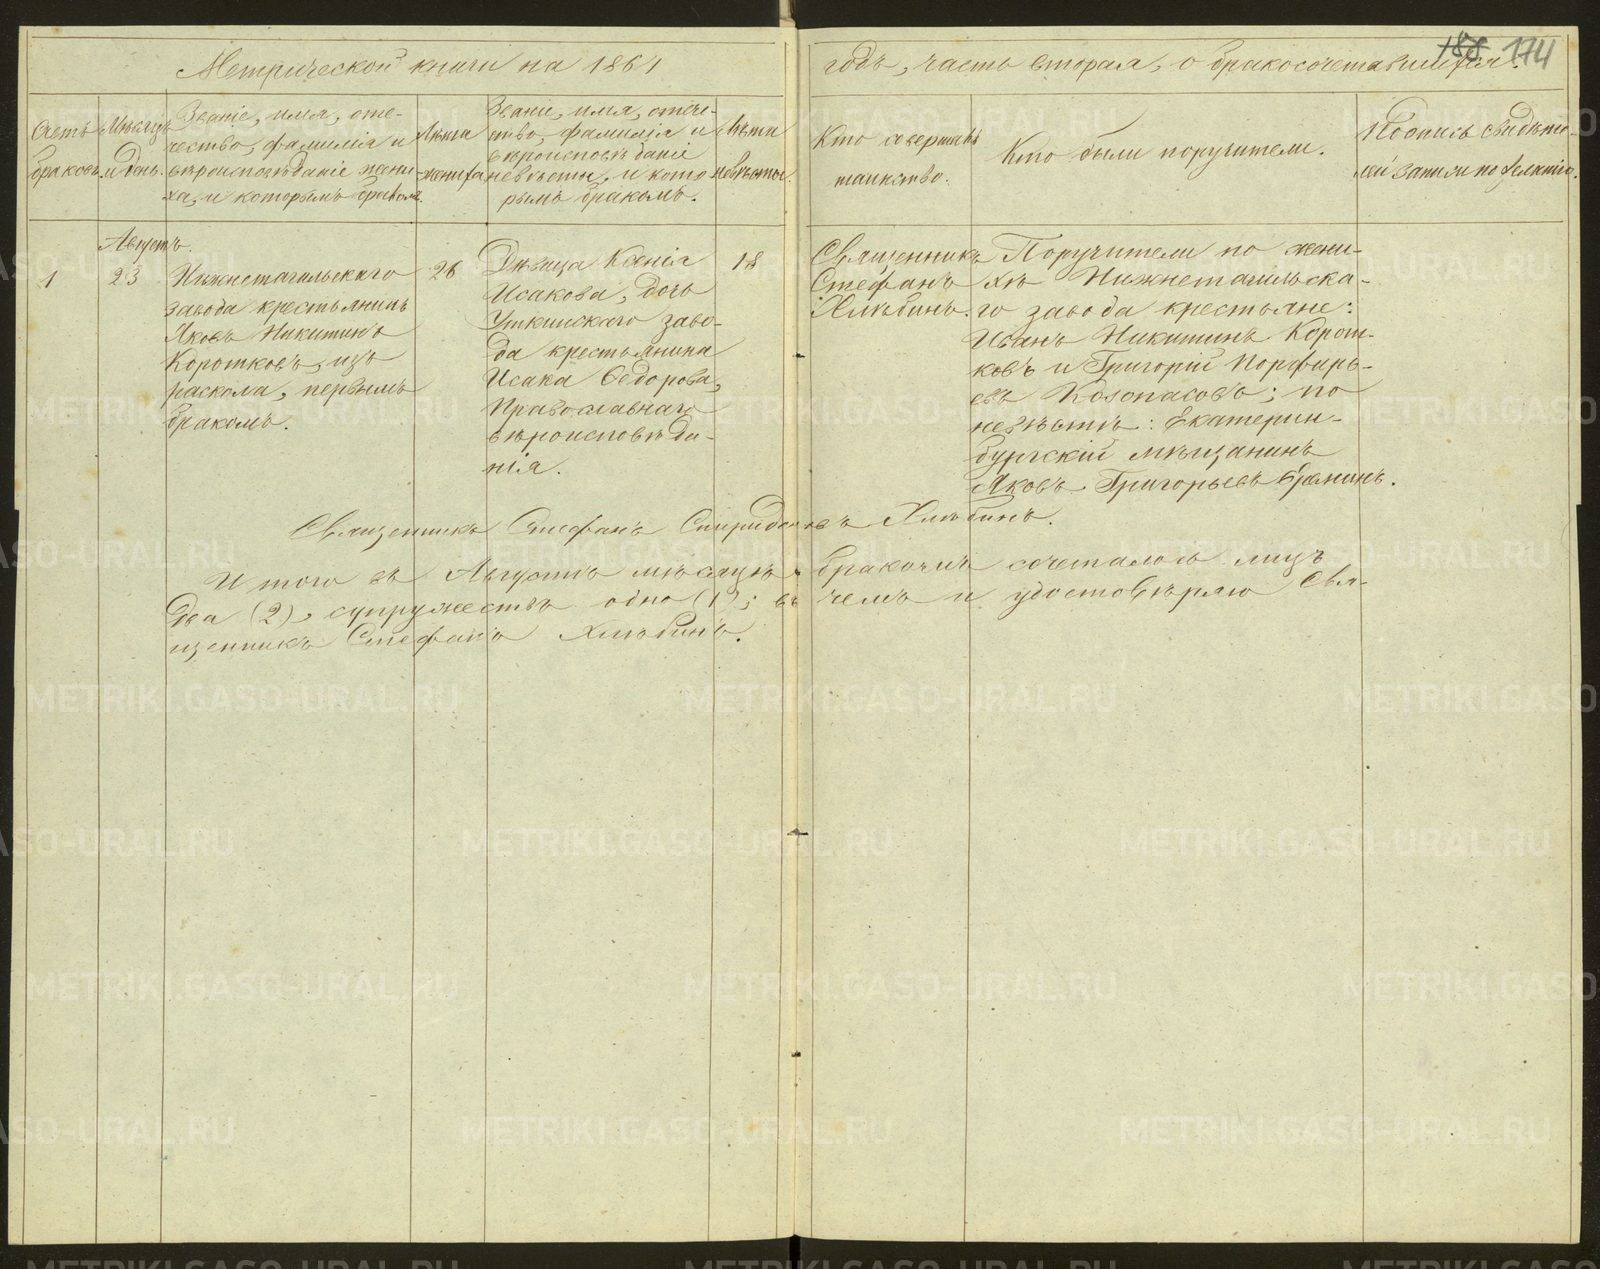 188 174
Метрической книги на 1861
годъ, часть вторая, о бракосочетавшихся.
Счетъ
браковъ.
Мѣсяцъ
и день.
Званіе, имя, оте-
чество, фамилія и
вѣроисповѣданіе жени-
ха, и которымъ бракомъ.
Лѣта
жениха
Званіе, имя, отече-
ство, фамилія и
вѣроисповѣданіе
невѣсты, и кото-
рымъ бракомъ.
Лѣта
невѣсты.
Кто совершалъ
таинство.
Кто были поручители.
Подпись свидѣте-
лей записи по желанію.
1
Августъ.
23
Нижнетагильскаго
завода крестьянинъ
Яковъ Никитинъ
Коротковъ, изъ
раскола, первымъ
бракомъ.
26
Дѣвица Ксенія
Исакова, дочь
Уткинскаго заво-
да крестьянина
Исака Ѳедорова,
Православнаго
вѣроисповѣда-
нія.
18
Священникъ
Стефанъ
Хлѣбинъ.
Поручители по жени-
хѣ Нижнетагильска-
го завода крестьяне:
Иванъ Никитинъ Корот-
ковъ и Григорій Порфирь-
евъ Колопасовъ; по
невѣстѣ: Екатерин-
бургскій мѣщанинъ
Яковъ Григорьевъ
Священникъ Стефанъ Спиридоновъ Хлѣбинъ.
Итого въ Августѣ мѣсяцѣ бракомъ сочеталось лицъ
два (2), супружествъ одно (1); въ чемъ и удостовѣряю Свя-
щенникъ Стефанъ Хлѣбинъ.
METRIKI.GASO-URAL.RU